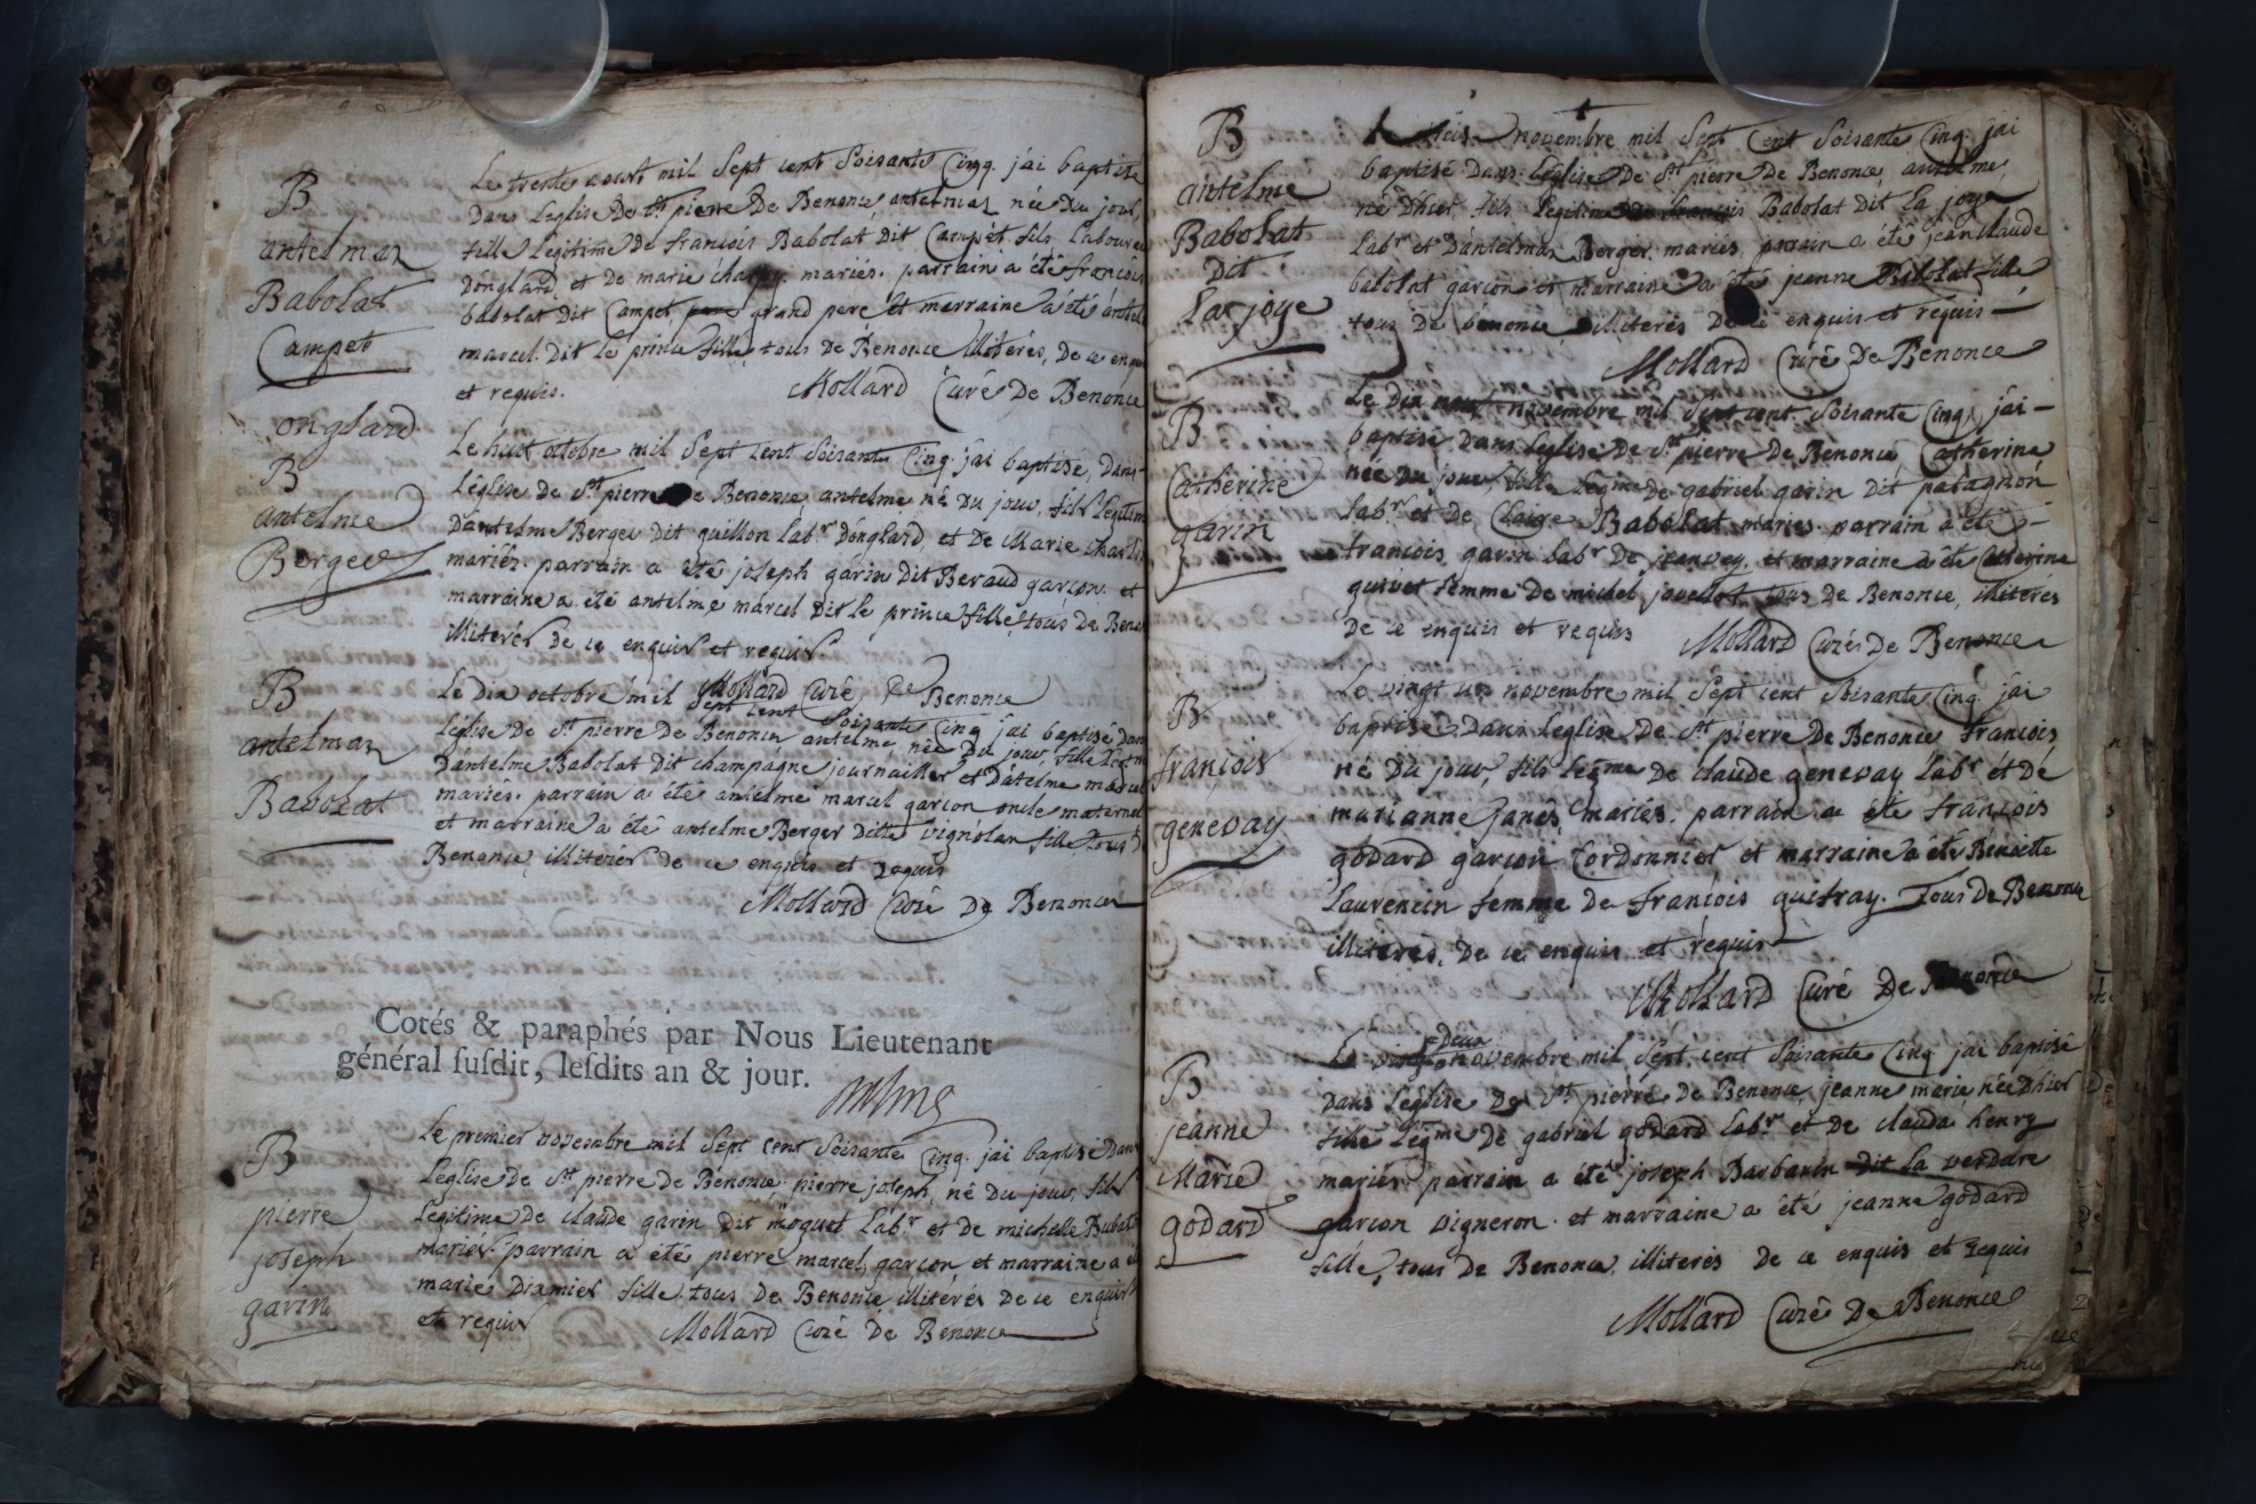 B
antelmaz
Babolat
Campet
onglard
Le trente aoust mil Sept cent Soisante Cinq. j'ai baptise
Dans L'eglise De St pierre De Benonce antelmaz née Du jour,
fille Legitime De francois Babolat Dit Campet fils Laboureu
D'onglard et De marie mariés. parrain a été francois
babolat Dit Campet grand pere et marraine a été antel
marcel Dit le prince fille, tous De Benonce illiterés, De ce enqu
et requis. Mollard Curé De Benonce
B
antelme
Berger
Le huit octobre mil Sept Cent Soisante Cinq. j'ai baptise, Dans
L'église de St pierre de Benonce, antelme né Du jour, fils Legitim
D'antelme Berger Dit guillon labr D'onglard, et De Marie Charl
mariés. parrain a été joseph garin Dit Beraud garçon. et
marraine a été antelme marcel Dit le prince fille, tous De Beno
illiterés de ce enquis et requis
Mollard Curé De Benonce
B
antelmaz
Babolat
Le Dix octobre mil Sept cent Soisante Cinq j'ai baptisé Dans
L'église De St pierre De Benonce antelme, née Du jour, fille Legm
D'antelme Babolat Dit champagne journaillier et D'atelme marcel
mariés. parrain a été antelme marcel garcon oncle maternel
et marraine a été antelme Berger Ditte Vignolan fille, tous D
Benonce, illiterés de ce enquis et requis
Mollard Curé De Benonce
Cotés & paraphés par Nous Lieutenant
général ſuſdit, leſdits an & jour.
B
pierre
joseph
garin
Le premier novembre mil Sept cent Soisante Cinq. j'ai baptisé Dans
L'eglise De St pierre De Benonce, pierre joseph, né Du jour, fils
Legitime De claude garin Dit moquet Labr et de michelle Rubat
mariés. parrain a été pierre marcel, garçon, et marraine a é
marie Dramier fille. tous De Benonce, illiterés De ce enquis
et requis Mollard Curé De Benonce
B
antelme
Babolat
Dit
La joye
Le novembre mil Sept Cent Soisante Cinq. j'ai
baptisé Dans L'église De St pierre De Benonce, antelme,
né D'hier, fils Legitime De francois Babolat Dit La joye
labr et D'antelmaz Berger, mariés, parrain a été jean claude
babolat garcon et marraine a été jeanne Babolat fille
tous De benonce illiterés De ce enquis et requis
Mollard Curé De Benonce
B
Catherine
garin
Le Dix neuf novembre mil Sept cent Soisante Cinq, j'ai
baptisé Dans L'eglise De St pierre De Benonce Catherine
née Du jour, fille Legme De gabriel garin Dit patagnon
labr et De Claire Babolat mariés. parrain a été
francois garin labr De jeanvey. et marraine a été Catherine
guivet femme De michel jouellot tous De Benonce, illiterés
De ce enquis et requis Mollard Curé De Benonce
B
francois
genevay
Le vingt un novembre mil Sept cent Soisante Cinq. j'ai
baptisé Dans L'eglise De St pierre De Benonce francois
né Du jour, fils Legme De claude genevay Labr et De
marianne Janez mariés. parrain a été francois
godard garcon Cordonnier et marraine a été Benoitte
Laurencin femme De francois guifray. Tous De Benonce
illiterés, De ce enquis et requis
Mollard Curé De Benonce
B
jeanne
Marie
godard
Le vingt Deux novembre mil Sept cent Soisante Cinq j'ai baptisé
Dans L'église De St pierre De Benonce, jeanne marie née D'hier
fille Legme De gabriel godard labr et De clauda henry
mariés. parrain a été joseph Barbarin Dit La verdure
garcon vigneron. et marraine a été jeanne godard
fille, tous De Benonce, illiterés De ce enquis et requis
Mollard Curé De Benonce